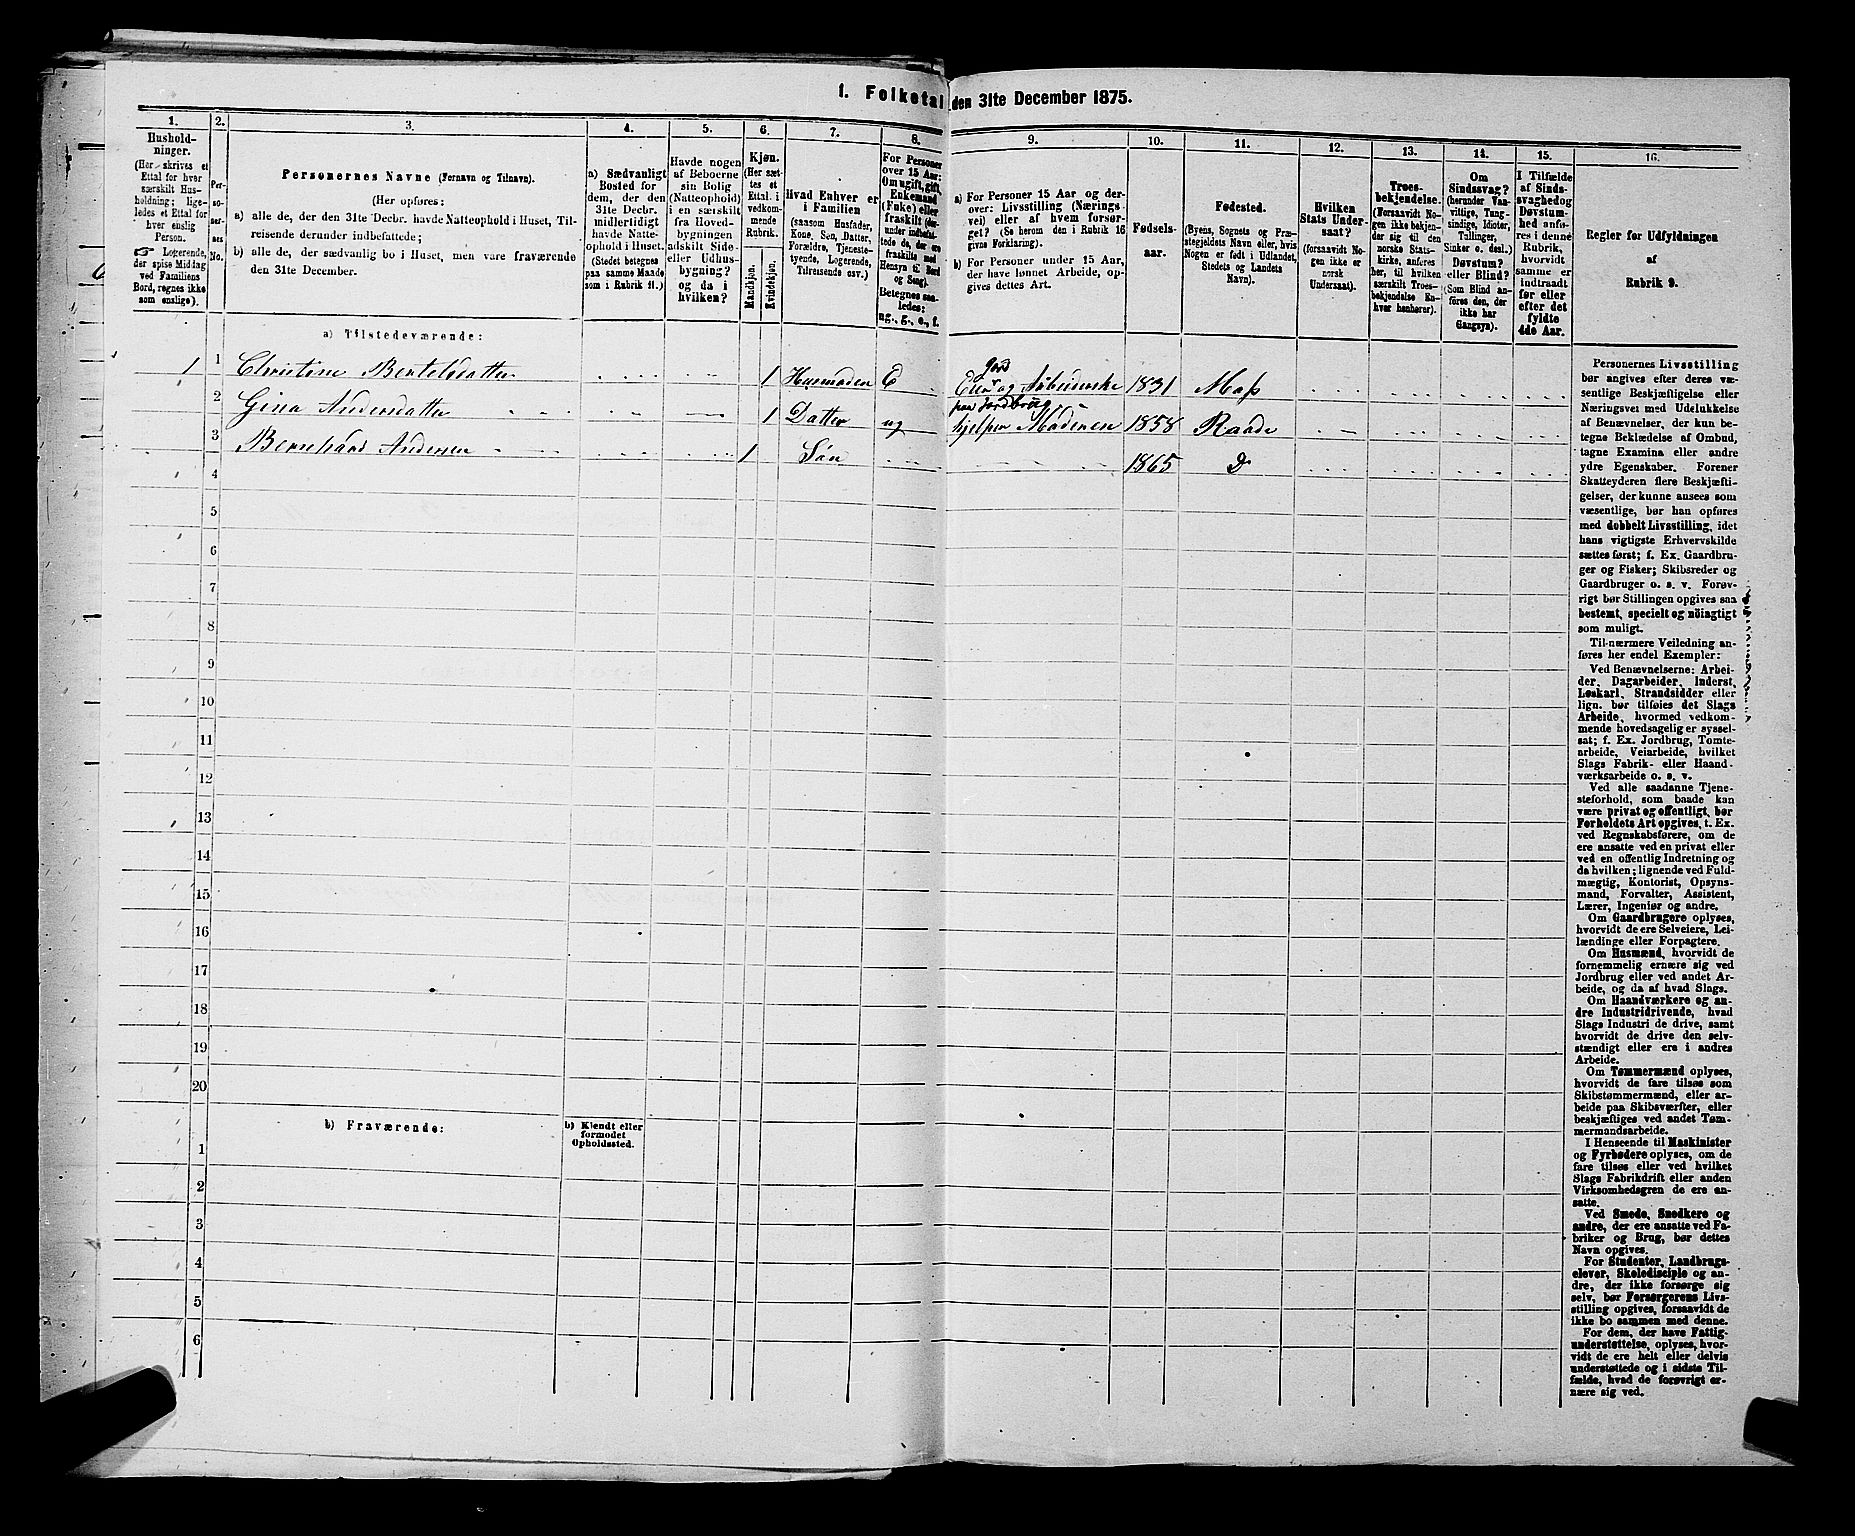 1. Folketal den 31te December 1875.
1.
Hushold-
ninger.
(Her skrives et
Ettal for hver
særskilt Hus-
holdning; lige-
ledes et Ettal for
hver enslig
Person.
Logerende,
der spise Middag
ved Familiens
Bord, regnes ikke
som enslige).
2.
Per-
so-
ner-
nes
No.
3.
Personernes Navne (Fornavn og Tilnavn).
(Her opføres:
a) alle de, der den 31te Decbr. havde Natteophold i Huset, Til-
reisende derunder indbefattede;
b) alle de, der sædvanlig bo i Huset, men vare fraværende
den 31te December.
4.
a) Sædvanligt
Bosted for
dem, der den
31te Decbr.
midlertidigt
havde Natte-
ophold i Huset.
(Stedet betegnes
paa samme Maade
som i Rubrik 11.)
5.
Havde nogen
af Beboerne
sin Bolig
(Natteophold)
i en særskilt
fra Hoved-
bygningen
adskilt Side-
eller Udhus-
bygning?
og da i
hvilken?
6.
Kjøn.
(Her sæt-
tes et
Ettal i
vedkom-
mende
Rubrik.
Mandkjøn.
Kvindekjøn.
7.
Hvad Enhver er
i Familien
(saasom Husfader,
Kone, Søn, Datter,
Forældre, Tjeneste-
tyende, Logerende,
Tilreisende osv.)
8.
For Personer
over 15 Aar:
Om ugift, gift,
Enkemand
(Enke) eller
fraskilt (der-
under indbefat-
tede de, der ere
fraskilte med
Hensyn til Bord
og Seng).
Betegnes saa-
ledes:
ug., g., e., f.
9.
a) For Personer 15 Aar og der-
over: Livsstilling (Nærings-
vei) eller af hvem forsør-
get? (Se herom den i Rubrik 16
givne Forklaring).
b) For Personer under 15 Aar,
der have lønnet Arbeide, op-
gives dettes Art.
10.
Fødsels-
aar.
11.
Fødested.
(Byens, Sognets og Præ-
stegjeldets Navn eller, hvis
Nogen er født i Udlandet,
Stedets og Landets
Navn).
12.
Hvilken
Stats Under-
saat?
(forsaavidt No-
gen ikke er
norsk
Undersaat).
13.
Troes-
bekjendelse.
(Forsaavidt No-
gen ikke bekjen-
der sig til den
norske Stats-
kirke, anføres
her, til hvilken
særskilt Troes-
bekjendelse En-
hver henhører).
14.
Om
Sindssvag?
(herunder Van-
vittige, Tung-
sindige, Idioter,
Tullinger,
Sinker o. desl.).
Døvstum?
eller Blind?
(Som Blind an-
føres den, der
ikke har
Gangsyn).
15.
I Tilfælde
af Sinds-
svaghed og
Døvstum-
hed anfø-
res i denne
Rubrik,
hvorvidt
samme er
indtraadt
før eller
efter det
fyldte
4de Aar.
16.
Regler for Udfyldningen
af
Rubrik 9.
a) Tilstedeværende:
1 1 Christine Bertelsdatter 1 Husmoder E Gaard 1831 Moss
2 Gina Andersdatter 1 Datter ug hjelper Moderen 1858 Raade
3 Bernhard Andersen 1 Søn 1865 D
4
5
6
7
8
9
10
11
12
13
14
15
16
17
18
19
20
b) Fraværende:
b) Kjendt eller
formodet
Opholdssted.
1
2
3
4
5
6
Personernes Livsstilling
bør angives efter deres væ-
sentlige Beskjæftigelse eller
Næringsvei med Udelukkelse
af Benævnelser, der kun be-
tegne Beklædelse af Ombud,
tagne Examina eller andre
ydre Egenskaber. Forener
Skatteyderen flere Beskjæfti-
gelser, der kunne ansees som
væsentlige, bør han opføres
med dobbelt Livsstilling, idet
hans vigtigste Erhvervskilde
sættes først; f. Ex. Gaardbru-
ger og Fisker; Skibsreder og
Gaardbruger o. s. v. Forøv-
rigt bør Stillingen opgives saa
bestemt, specielt og nöiagtigt
som muligt.
Til nærmere Veiledning an-
føres her endel Exempler:
Ved Benævnelserne: Arbei-
der, Dagarbeider, Inderst,
Løskarl, Strandsidder eller
lign. bør tilføies det Slags
Arbeide, hvormed vedkom-
mende hovedsagelig er syssel-
sat; f. Ex. Jordbrug, Tomte-
arbeide, Veiarbeide, hvilket
Slags Fabrik- eller Haand-
værksarbeide o. s. v.
Ved alle saadanne Tjene-
steforhold, som baade kan
være privat og offentligt, bør
Forholdets Art opgives, t. Ex.
ved Regnskabsførere, om de
ere ansatte ved en privat eller
ved en offentlig Indretning og
da hvilken; lignende ved Fuld-
mægtig, Kontorist, Opsyns-
mand, Forvalter, Assistent,
Lærer, Ingeniør og andre.
Om Gaardbrugere oplyses,
hvorvidt de ere Selveiere, Lei-
lændinge eller Forpagtere.
Om Husmænd, hvorvidt de
fornemmelig ernære sig ved
Jordbrug eller ved andet Ar-
beide, og da af hvad Slags.
Om Haandværkere og an-
dre Industridrivende, hvad
Slags Industri de drive, samt
hvorvidt de drive den selv-
stændigt eller ere i andres
Arbeide.
Om Tømmermænd oplyses,
hvorvidt de fare tilsøs som
Skibstømmermænd, eller ar-
beide paa Skibsværfter, eller
beskjæftiges ved andet Tøm-
mermandsarbeide.
I Henseende til Maskinister
og Fyrbødere oplyses, om de
fare tilsøs eller ved hvilket
Slags Fabrikdrift eller anden
Virksomhedsgren de ere an-
satte.
Ved Smede, Snedkere og
andre, der ere ansatte ved Fa-
briker og Brug, bør dettes
Navn opgives.
For Studenter, Landbrugs-
elever, Skoledisciple og an-
dre, der ikke forsørge sig
selv, bør Forsørgerens Livs-
stilling opgives, forsaavidt de
ikke bo sammen med denne.
For dem, der have Fattig-
understøttelse, oplyses, hvor-
vidt de ere helt eller delvis
understøttede og i sidste Til-
fælde, hvad de forøvrigt er-
nære sig ved.